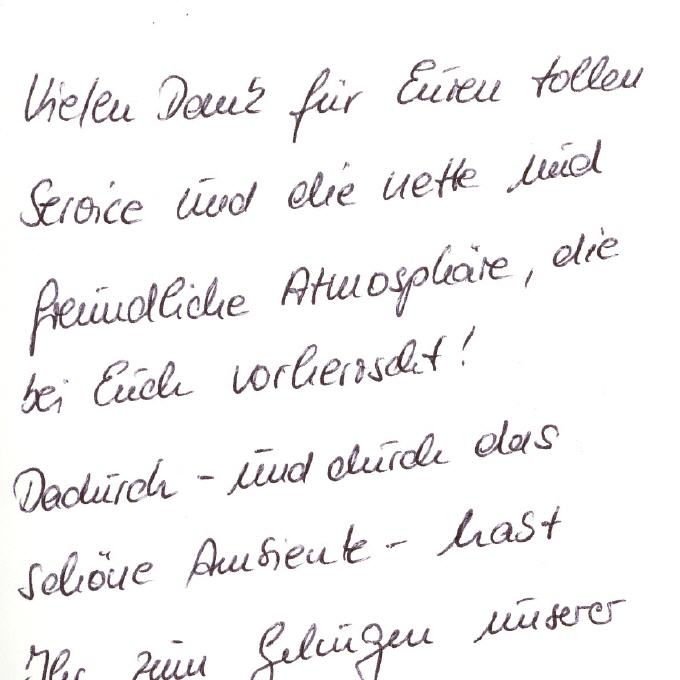 Vielen Dank für Euren tollen
Service und die nette und
freundliche Atmosphäre, die
bei Euch vorherrscht!
Dadurch - und durch das
schöne Ambiente - habt
Ihr zum Gelingen unserer